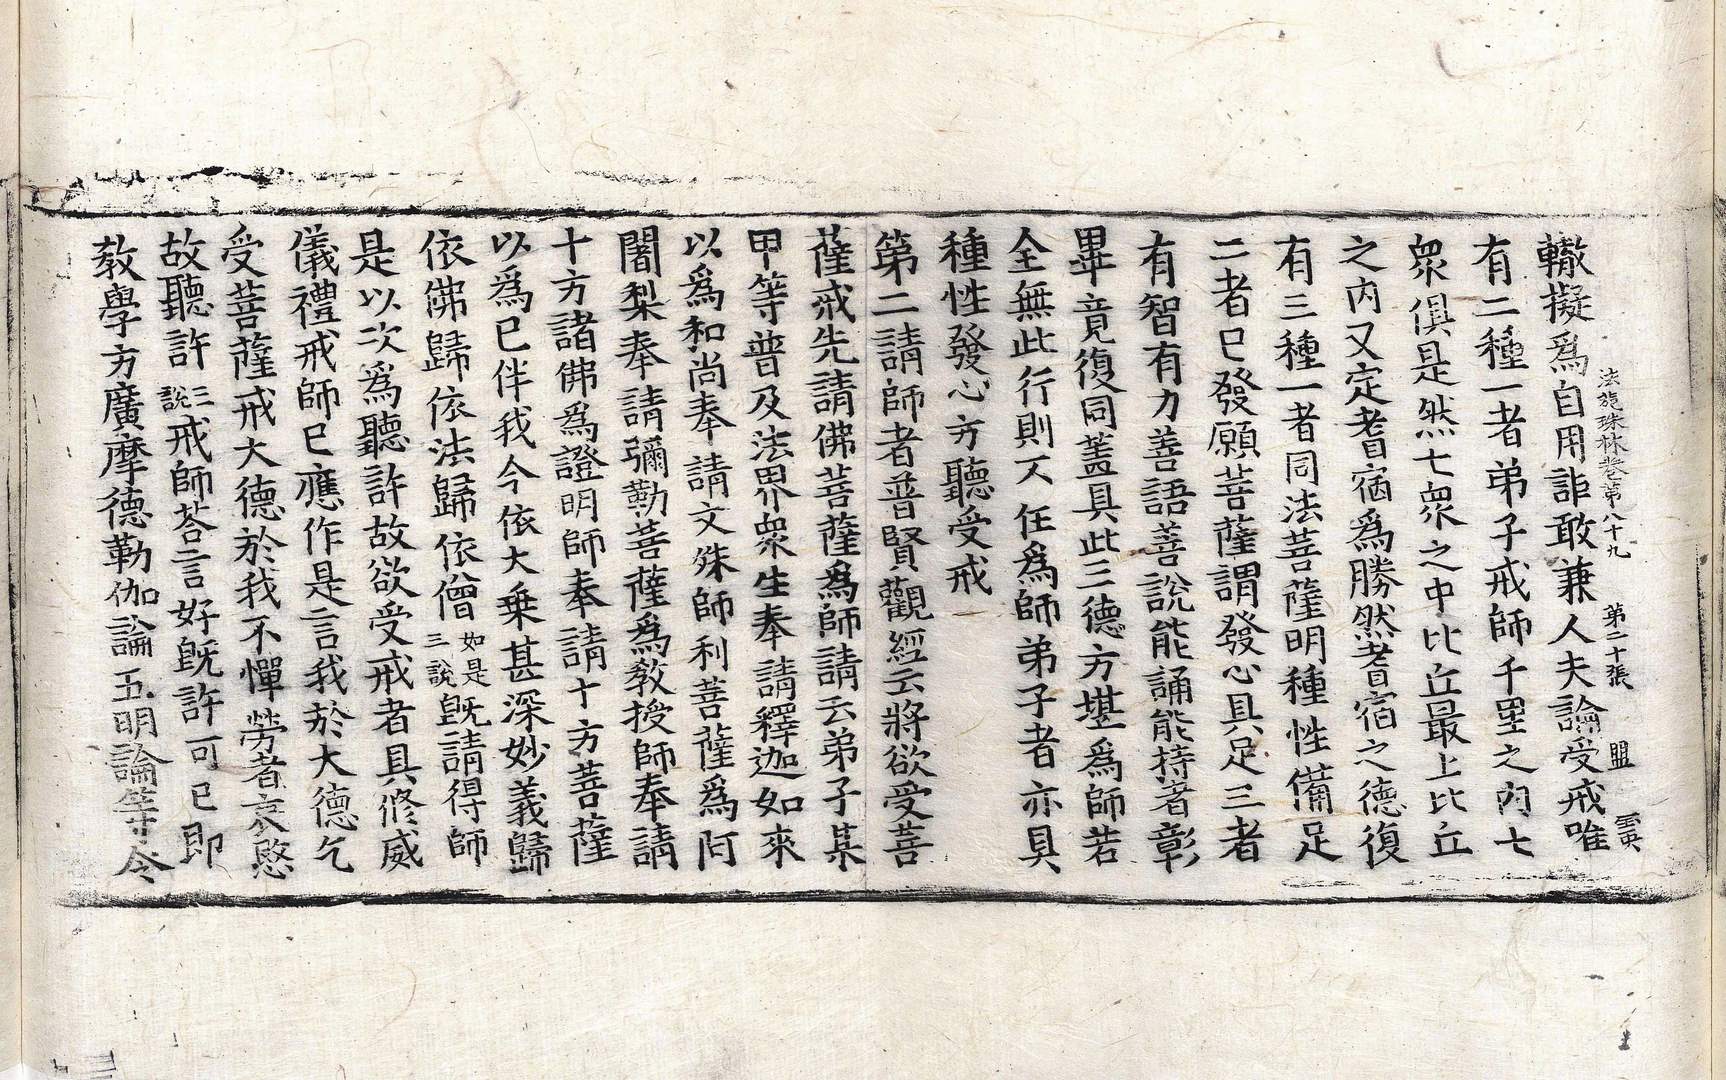 法苑珠林卷第八十九　第二十張　盟　雲
轍擬爲自用詎敢兼人夫論受戒唯
有二種一者弟子戒師千里之內七
衆俱是然七衆之中比丘最上比丘
之內又定耆宿爲勝然耆宿之德復
有三種一者同法菩薩明種性備足
二者已發願菩薩謂發心具足三者
有智有力善語善說能誦能持著彰
畢竟復同蓋具此三德方堪爲師若
全無此行則不任爲師弟子者亦具
種性發心方聽受戒
第二請師者普賢觀經云將欲受菩
薩戒先請佛菩薩爲師請云弟子某
甲等普及法界衆生奉請釋迦如來
以爲和尚奉請文殊師利菩薩爲阿
闍梨奉請彌勒菩薩爲教授師奉請
十方諸佛爲證明師奉請十方菩薩
以爲已伴我今依大乗甚深妙義歸
依佛歸依法歸依僧如是三說旣請得師
是以次爲聽許故欲受戒者具修威
儀禮戒師已應作是言我於大德乞
受菩薩戒大德於我不憚勞者哀愍
故聽許三說戒師荅言好旣許可已即
教學方廣摩德勒伽論五明論等令